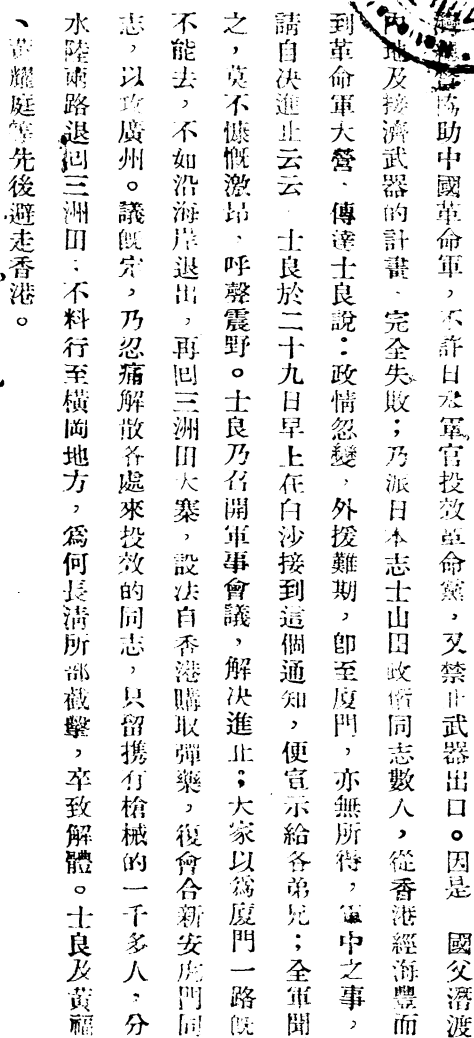 協助中國革命軍，不許日本軍官投效革命黨，又禁止武器出口。因是　國父潛渡
內地及接濟武器的計畫、完全失敗；乃派日本志士山田政偕同志數人，從香港經海豐而
到革命軍大營、傳達士良說：政情忽變、外援難期，卽至厦門，亦無所得，軍中之事，
請自决進止云云　士良於二十九日早上在白沙接到這個通知，便宣示給各弟兄；全軍聞
之，莫不慷慨激昂、呼聲震野。士良乃召開軍事會議，解决進止；大家以爲厦門一路旣
不能去，不如沿海岸退出，再囘三洲田大寨，設法自香港購取彈藥，復會合新安虎門同
志，以攻廣州。議旣定，乃忍痛解散各處來投效的同志，只留携有槍械的一千多人，分
水陸兩路退囘三洲田；不料行至橫岡地方，爲何長清所部截擊，卒致解體。士良及黃福
、黃耀庭等先後避走香港。